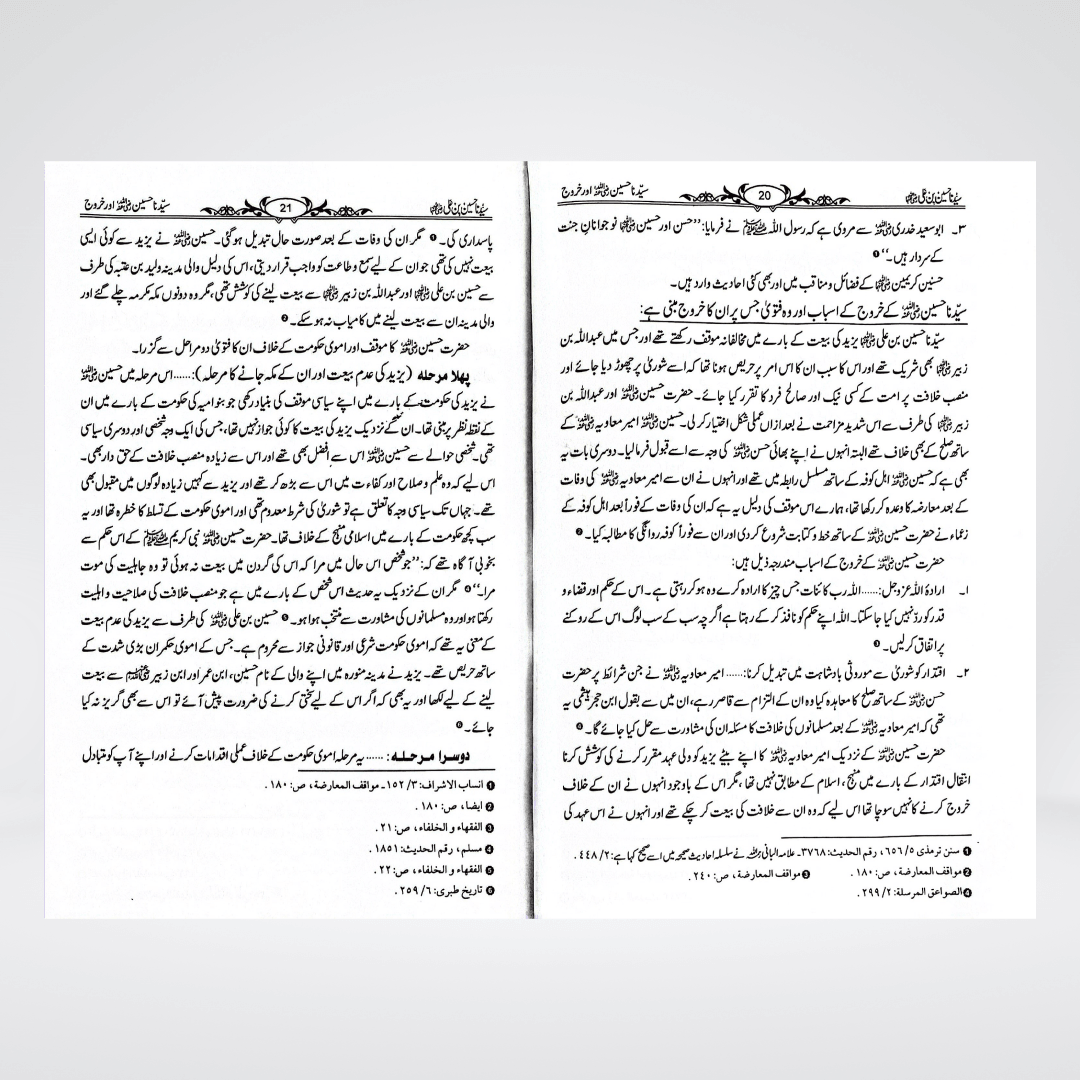 سیّدنا حسین بن علی رضی اللہ عنہما 20 سیّدنا حسین رضی اللہ عنہ اور خروج
۳۔ ابوسعید خدری رضی اللہ عنہ سے مروی ہے کہ رسول اللہ ﷺ نے فرمایا: ’’حسن اور حسین رضی اللہ عنہما نوجوانانِ جنت
کے سردار ہیں۔‘‘ ❶
حسنین کریمین رضی اللہ عنہما کے فضائل و مناقب میں اور بھی کئی احادیث وارد ہیں۔
سیّدنا حسین رضی اللہ عنہ کے خروج کے اسباب اور وہ فتویٰ جس پر ان کا خروج مبنی ہے:
سیّدنا حسین بن علی رضی اللہ عنہما یزید کی بیعت کے بارے میں مخالفانہ موقف رکھتے تھے اور جس میں عبداللہ بن
زبیر رضی اللہ عنہما بھی شریک تھے اور اس کا سبب ان کا اس امر پر حریص ہونا تھا کہ اسے شوریٰ پر چھوڑ دیا جائے اور
منصب خلافت پر امت کے کسی نیک اور صالح فرد کا تقرر کیا جائے۔ حضرت حسین رضی اللہ عنہ اور عبداللہ بن
زبیر رضی اللہ عنہما کی طرف سے اس شدید مزاحمت نے بعد ازاں عملی شکل اختیار کر لی۔ حسین رضی اللہ عنہ امیر معاویہ رضی اللہ عنہ کے
ساتھ صلح کے بھی خلاف تھے البتہ انہوں نے اپنے بھائی حسن رضی اللہ عنہ کی وجہ سے اسے قبول فرما لیا۔ دوسری بات یہ
بھی ہے کہ حسین رضی اللہ عنہ اہل کوفہ کے ساتھ مسلسل رابطہ میں تھے اور انہوں نے ان سے امیر معاویہ رضی اللہ عنہ کی وفات
کے بعد معارضہ کا وعدہ کر رکھا تھا، ہمارے اس موقف کی دلیل یہ ہے کہ ان کی وفات کے فوراً بعد اہل کوفہ کے
زعماء نے حضرت حسین رضی اللہ عنہ کے ساتھ خط و کتابت شروع کر دی اور ان سے فوراً کوفہ روانگی کا مطالبہ کیا۔ ❷
حضرت حسین رضی اللہ عنہ کے خروج کے اسباب مندرجہ ذیل ہیں:
۱۔ ارادۂ اللہ عزوجل:……اللہ رب کائنات جس چیز کا ارادہ کرے وہ ہو کر رہتی ہے۔ اس کے حکم اور قضاء و
قدر کو رد نہیں کیا جا سکتا۔ اللہ اپنے حکم کو نافذ کر کے رہتا ہے اگرچہ سب کے سب لوگ اس کے روکنے
پر اتفاق کر لیں۔ ❸
۲۔ اقتدار کو شوریٰ سے موروثی بادشاہت میں تبدیل کرنا:…… امیر معاویہ رضی اللہ عنہ نے جن شرائط پر حضرت
حسن رضی اللہ عنہ کے ساتھ صلح کا معاہدہ کیا وہ ان کے التزام سے قاصر رہے، ان میں سے بقول ابن حجر ہیثمی یہ
تھی کہ امیر معاویہ رضی اللہ عنہ کے بعد مسلمانوں کی خلافت کا مسئلہ ان کی مشاورت سے حل کیا جائے گا۔ ❹
حضرت حسین رضی اللہ عنہ کے نزدیک امیر معاویہ رضی اللہ عنہ کا اپنے بیٹے یزید کو ولی عہد مقرر کرنے کی کوشش کرنا
انتقال اقتدار کے بارے میں منہج، اسلام کے مطابق نہیں تھا، مگر اس کے باوجود انہوں نے ان کے خلاف
خروج کرنے کا نہیں سوچا تھا اس لیے کہ وہ ان سے خلافت کی بیعت کر چکے تھے اور انہوں نے اس عہد کی
❶ سنن ترمذی ٥/ ٦٥٦، رقم الحدیث: ٣٧٦٨۔ علامہ البانی رحمہ اللہ نے سلسلہ احادیث صحیحہ میں اسے صحیح کہا ہے: ٢/ ٤٤٨ .
❷ مواقف المعارضة، ص: ١٨٠ . ❸ مواقف المعارضة، ص: ٢٤٠ .
❹ الصواعق المرسلة: ٢/ ٢٩٩ .
سیّدنا حسین بن علی رضی اللہ عنہما 21 سیّدنا حسین رضی اللہ عنہ اور خروج
پاسداری کی۔ ❶ مگر ان کی وفات کے بعد صورت حال تبدیل ہو گئی۔ حسین رضی اللہ عنہ نے یزید سے کوئی ایسی
بیعت نہیں کی تھی جو ان کے لیے سمع و طاعت کو واجب قرار دیتی، اس کی دلیل والی مدینہ ولید بن عتبہ کی طرف
سے حسین بن علی رضی اللہ عنہما اور عبداللہ بن زبیر رضی اللہ عنہما سے بیعت لینے کی کوشش تھی، مگر وہ دونوں مکہ مکرمہ چلے گئے اور
والی مدینہ ان سے بیعت لینے میں کامیاب نہ ہو سکے۔ ❷
حضرت حسین رضی اللہ عنہ کا موقف اور اموی حکومت کے خلاف ان کا فتویٰ دو مراحل سے گزرا۔
پہلا مرحلہ (یزید کی عدم بیعت اور ان کے مکہ جانے کا مرحلہ):……اس مرحلہ میں حسین رضی اللہ عنہ
نے یزید کی حکومت کے بارے میں اپنے سیاسی موقف کی بنیاد رکھی جو بنو امیہ کی حکومت کے بارے میں ان
کے نقطۂ نظر پر مبنی تھا۔ ان کے نزدیک یزید کی بیعت کا کوئی جواز نہیں تھا، جس کی ایک وجہ شخصی اور دوسری سیاسی
تھی۔ شخصی حوالے سے حسین رضی اللہ عنہ اس سے افضل بھی تھے اور اس سے زیادہ منصب خلافت کے حق دار بھی۔
اس لیے کہ وہ علم و صلاح اور کفاءت میں اس سے بڑھ کر تھے اور یزید سے کہیں زیادہ لوگوں میں مقبول بھی
تھے۔ جہاں تک سیاسی وجہ کا تعلق ہے تو شوریٰ کی شرط معدوم تھی اور اموی حکومت کے تسلط کا خطرہ تھا اور یہ
سب کچھ حکومت کے بارے میں اسلامی منہج کے خلاف تھا۔ حضرت حسین رضی اللہ عنہ نبی کریم ﷺ کے اس حکم سے
بخوبی آگاہ تھے کہ: ’’جو شخص اس حال میں مرا کہ اس کی گردن میں بیعت نہ ہوئی تو وہ جاہلیت کی موت
مرا۔‘‘ ❹ مگر ان کے نزدیک یہ حدیث اس شخص کے بارے میں ہے جو منصب خلافت کی صلاحیت و اہلیت
رکھتا ہو اور وہ مسلمانوں کی مشاورت سے منتخب ہوا ہو۔ ❺ حسین بن علی رضی اللہ عنہما کی طرف سے یزید کی عدم بیعت
کے معنی یہ تھے کہ اموی حکومت شرعی اور قانونی جواز سے محروم ہے۔ جس کے اموی حکمران بڑی شدت کے
ساتھ حریص تھے۔ یزید نے مدینہ منورہ میں اپنے والی کے نام حسین، ابن عمر اور ابن زبیر رضی اللہ عنہم سے بیعت
لینے کے لیے لکھا اور یہ بھی کہ اگر اس کے لیے سختی کرنے کی ضرورت پیش آئے تو اس سے بھی گریز نہ کیا
جائے۔ ❻
دوسرا مرحلہ: ……یہ مرحلہ اموی حکومت کے خلاف عملی اقدامات کرنے اور اپنے آپ کو متبادل
❶ انساب الاشراف: ٣/ ١٥٢۔ مواقف المعارضة، ص: ١٨٠ .
❷ ایضا، ص: ١٨٠ .
❸ الفقهاء و الخلفاء، ص: ٢١ .
❹ مسلم، رقم الحدیث: ١٨٥١ .
❺ الفقهاء و الخلفاء، ص: ٢٢ .
❻ تاریخ طبری: ٦/ ٢٥٩ .